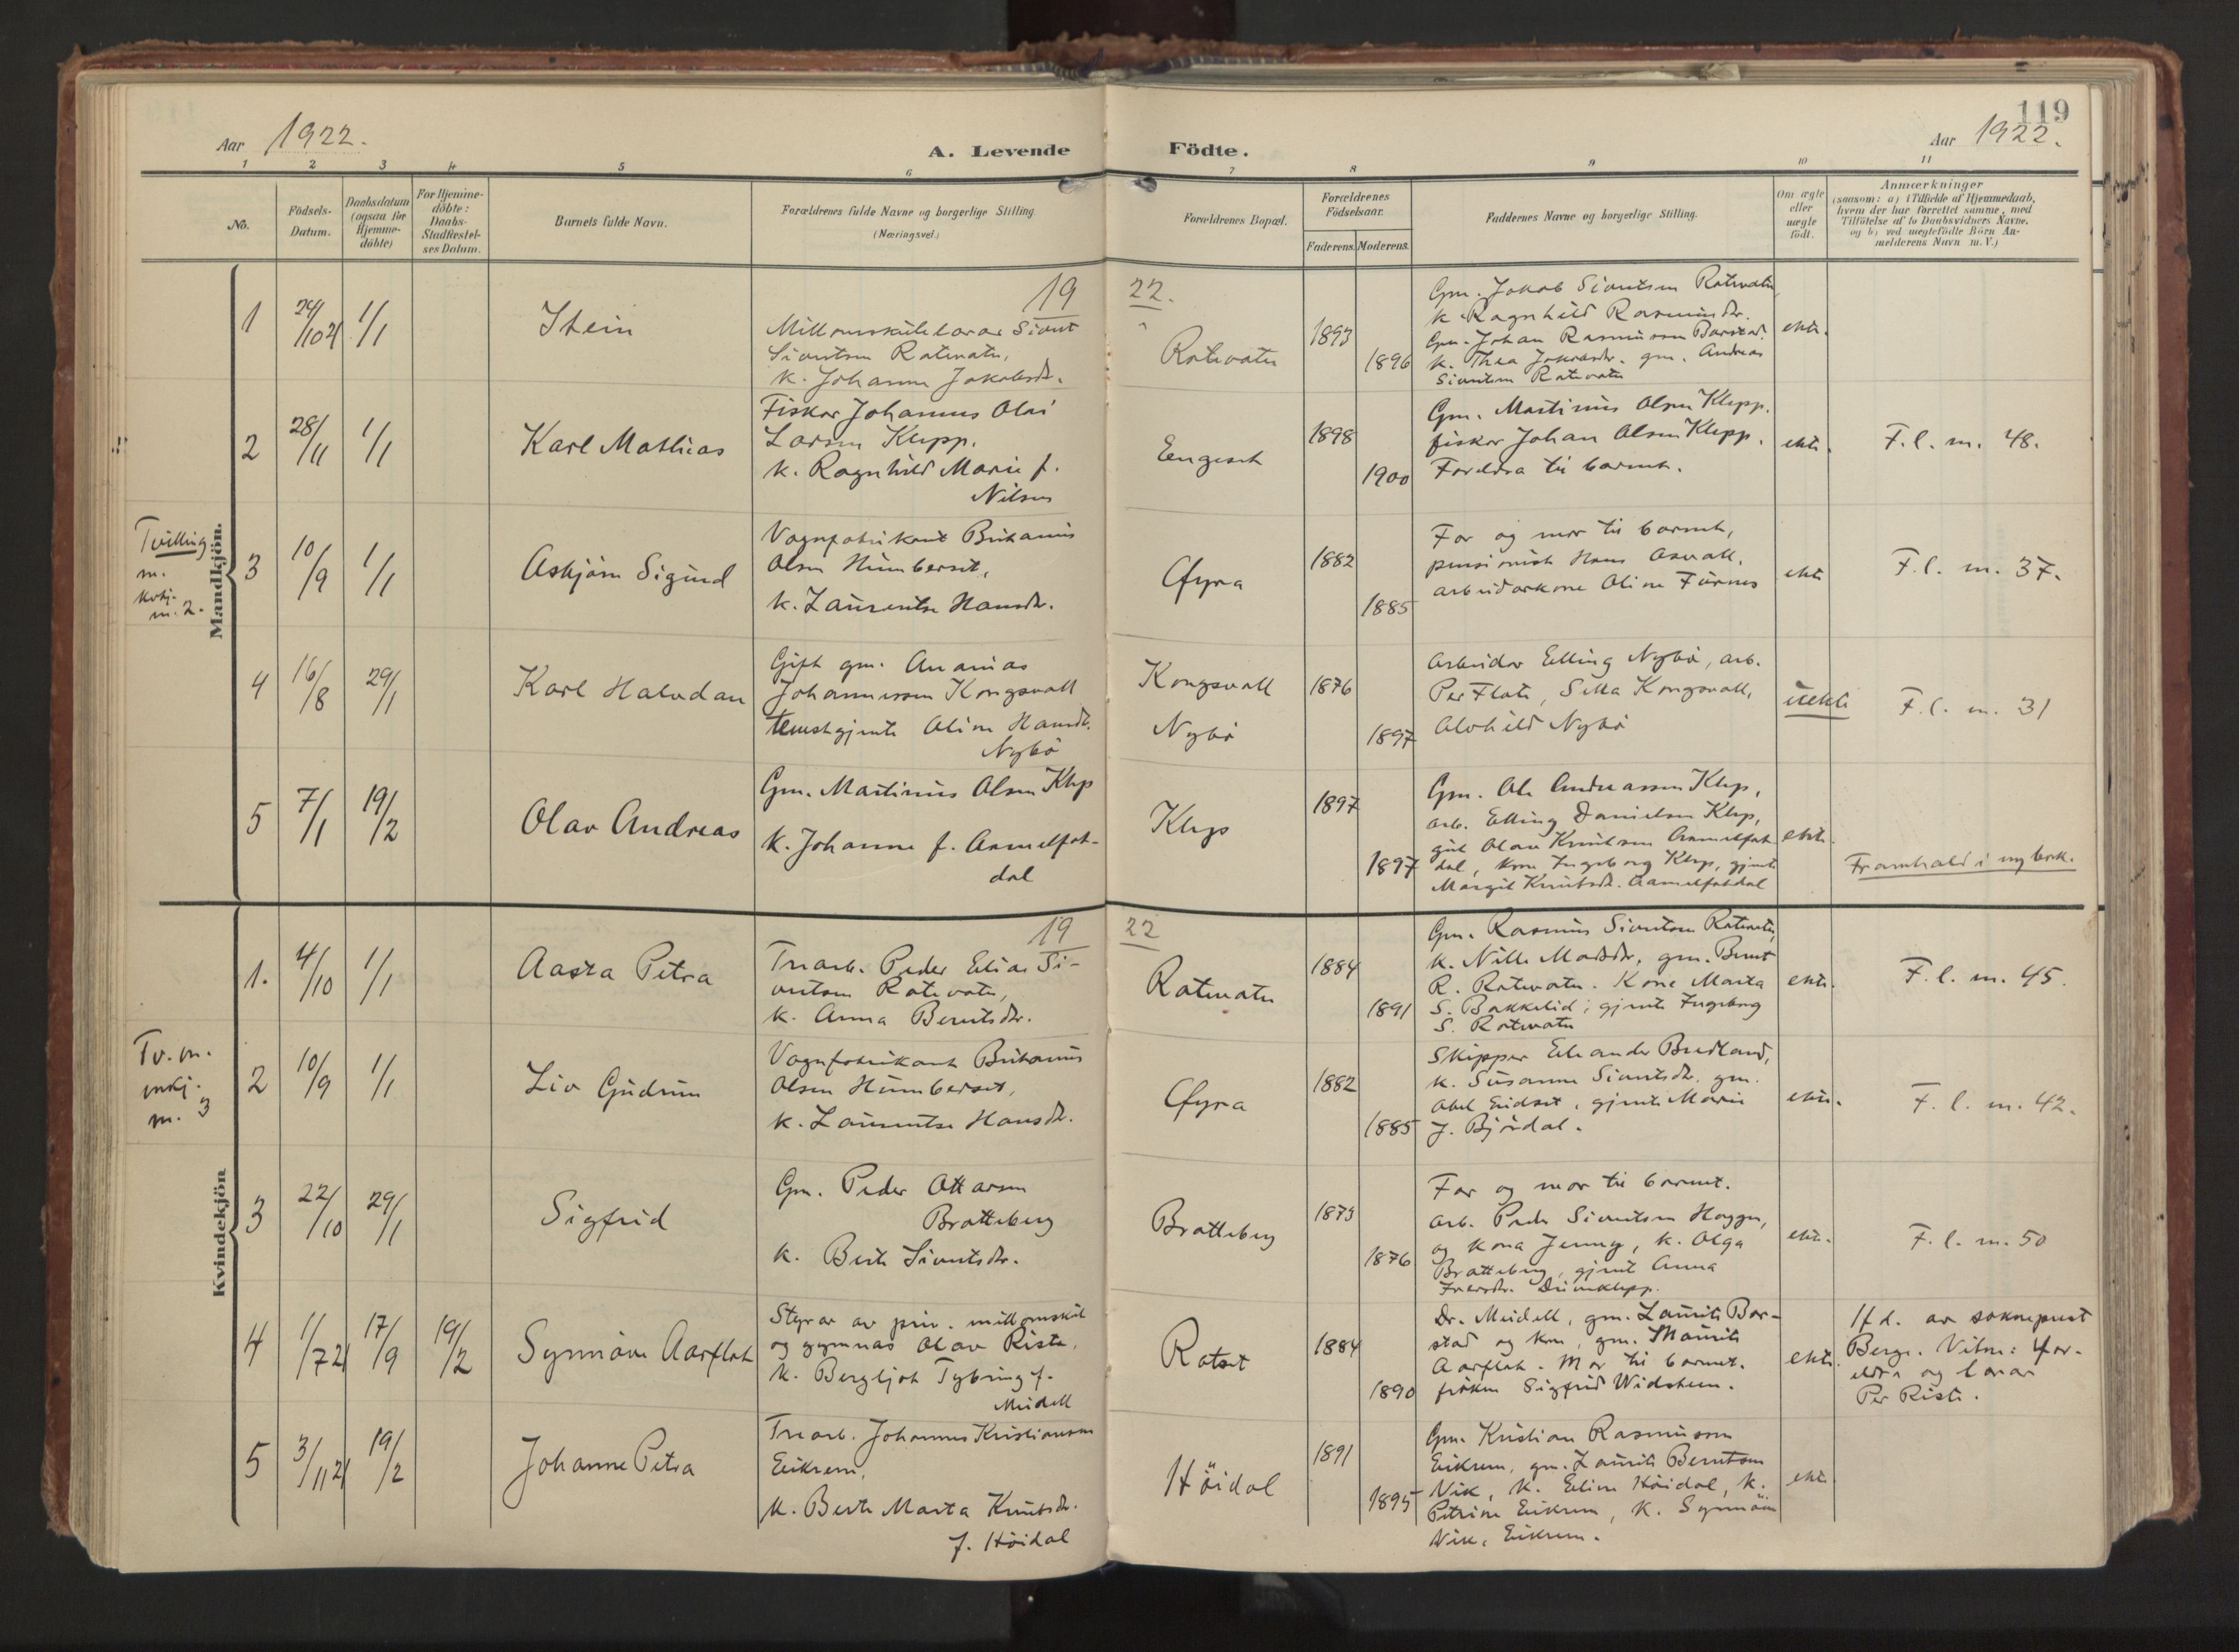 119
Aar 1922.
A. Levende Födte.
Aar 1922.
1 2 3 4 5 6 7 8 9 10 11
No.
Födsels-
Datum.
Daabsdatum
(ogsaa for
Hjemme-
döbte)
For Hjemme-
döbte:
Daabs-
Stadfæstel-
ses Datum.
Barnets fulde Navn.
Forældrenes fulde Navne og borgerlige Stilling
(Næringsvei.)
Forældrenes Bopæl.
Forældrenes
Födselsaar.
Faderens. Moderens.
Faddernes Navne og borgerlige Stilling.
Om ægte
eller
uægte
født.
Anmærkninger
(saasom: a) i Tilfælde af Hjemmedaab,
hvem der har forrettet samme, med
Tilföielse af to Daabsvidners Navne.
og b) ved uægtefödte Börn An-
melderens Navn m. V.)
Mandkjön.
19 22.
1 24/10 21 1/1
Stein
Millomskulelærar Sivert
Sivertsen Rotevatn,
k. Johanne Jakobsdr.
Rotevatn
1893
1896
Gm. Jakob Sivertsen Rotevatn,
k. Ragnhild Rasmusdr.
Gm. Johan Rasmussen Barstad.
k. Thea Jakobsdr. gm. Andreas
Sivertsen Rotevatn
ekte.
2 28/11 1/1
Karl Mathias
Fiskar Johannes Olai
Larsen Klepp.
k. Ragnhild Marie f.
Nilsen
Engeset
1898
1900
Gm. Martinus Olsen Klepp.
fiskar Johan Olsen Klepp.
Foreldra til barnet.
ekte.
F. l. m. 48.
Tvilling
m.
kvkj.
m. 2.
3 10/9 1/1
Asbjörn Sigurd
Vognfabrikant Britanius
Olsen Humberset,
k. Laurentse Hansdr.
Öyra
1882
1885
Far og mor til barnet,
pensionist Hans Aasvall,
arbeidarkone Oline Furnes
ekte
F. l. m. 37.
4 16/8 29/1
Karl Halvdan
Gift gm. Ananias
Johannessen Kongsvoll
tenestgjente Oline Hansdr.
Nybö
Kongsvoll
Nybö
1876
1897
Arbeidar Elling Nybö, arb.
Per Flote, Silla Kongsvoll,
Alvhild Nybö
uekte
F. l. m. 31
5 7/1 19/2
Olav Andreas
Gm. Martinus Olsen Klep
k. Johanne f. Aamelfot-
dal
Klep
1897
1897
Gm. Ole Andreassen Klep,
arb. Elling Danielsen Klep,
gut Olav Knutsen Aamelfot
dal, kone Ingeborg Klep, gjente
Margit Knutsdr. Aamelfotdal
ekte.
Framhald i ny bok.
Kvindekjön
19 22
1. 4/10 1/1
Aasta Petra
Trearb. Peder Elias Si-
vertsen Rotevatn,
k. Anna Berntsdr.
Rotevatn
1884
1891
Gm. Rasmus Sivertsen Rotevatn,
k. Nille Madsdr. gm. Bernt
R. Rotevatn. Kone Marta
S. Bakkelid; gjente Ingeborg
S. Rotevatn
ekte.
F. l. m. 45.
Tv. m.
mkj.
m. 3
2 10/9 1/1
Liv Gudrun
Vognfabrikant Britanius
Olsen Humberset,
k. Laurentse Hansdr.
Öyra
1882
1885
Skipper Eleander Bredland,
k. Susanne Sivertsdr. gm.
Abel Eidset, gjente Marie
J. Björdal.
ekte.
F. l. m. 42.
3 22/10 29/1
Sigfrid
Gm. Peder Ottarsen
Bratteberg
k. Berte Sivertsdr.
Bratteberg
1873
1876
Far og mor til barnet.
arb. Peder Sivertsen Hagen,
og kona Jenny, k. Olga
Bratteberg, gjente Anna
Iversdr. Driveklepp.
ekte.
F. l. m. 50
4 1/7 21 17/9 19/2
Synnöve Aarflot
Styrar av priv. millomskul
og gymnas Olav Riste,
k. Bergljot Tybring f.
Meidell
Rotset
1884
1890
Dr. Meidell, gm. Laurits Bar-
stad og kone, gm. Maurits
Aarflot. Mor til barnet.
fröken Sigfrid Widsteen.
ekte.
Hd. av sokneprest
Berge. Vitne: for-
eldra og lærar
Per Riste.
5 3/11 21 19/2
Johanne Petra
Trearb. Johannes Kristiansen
Eikrem,
k. Berte Marta Knutsdr.
f. Höidal
Höidal
1891
1895
Gm. Kristian Rasmussen
Eikrem, gm. Laurits Berntsen
Vik, k. Eline Höidal, k.
Petrine Eikrem, k. Synnöve
Vik, Eikrem.
ekte.